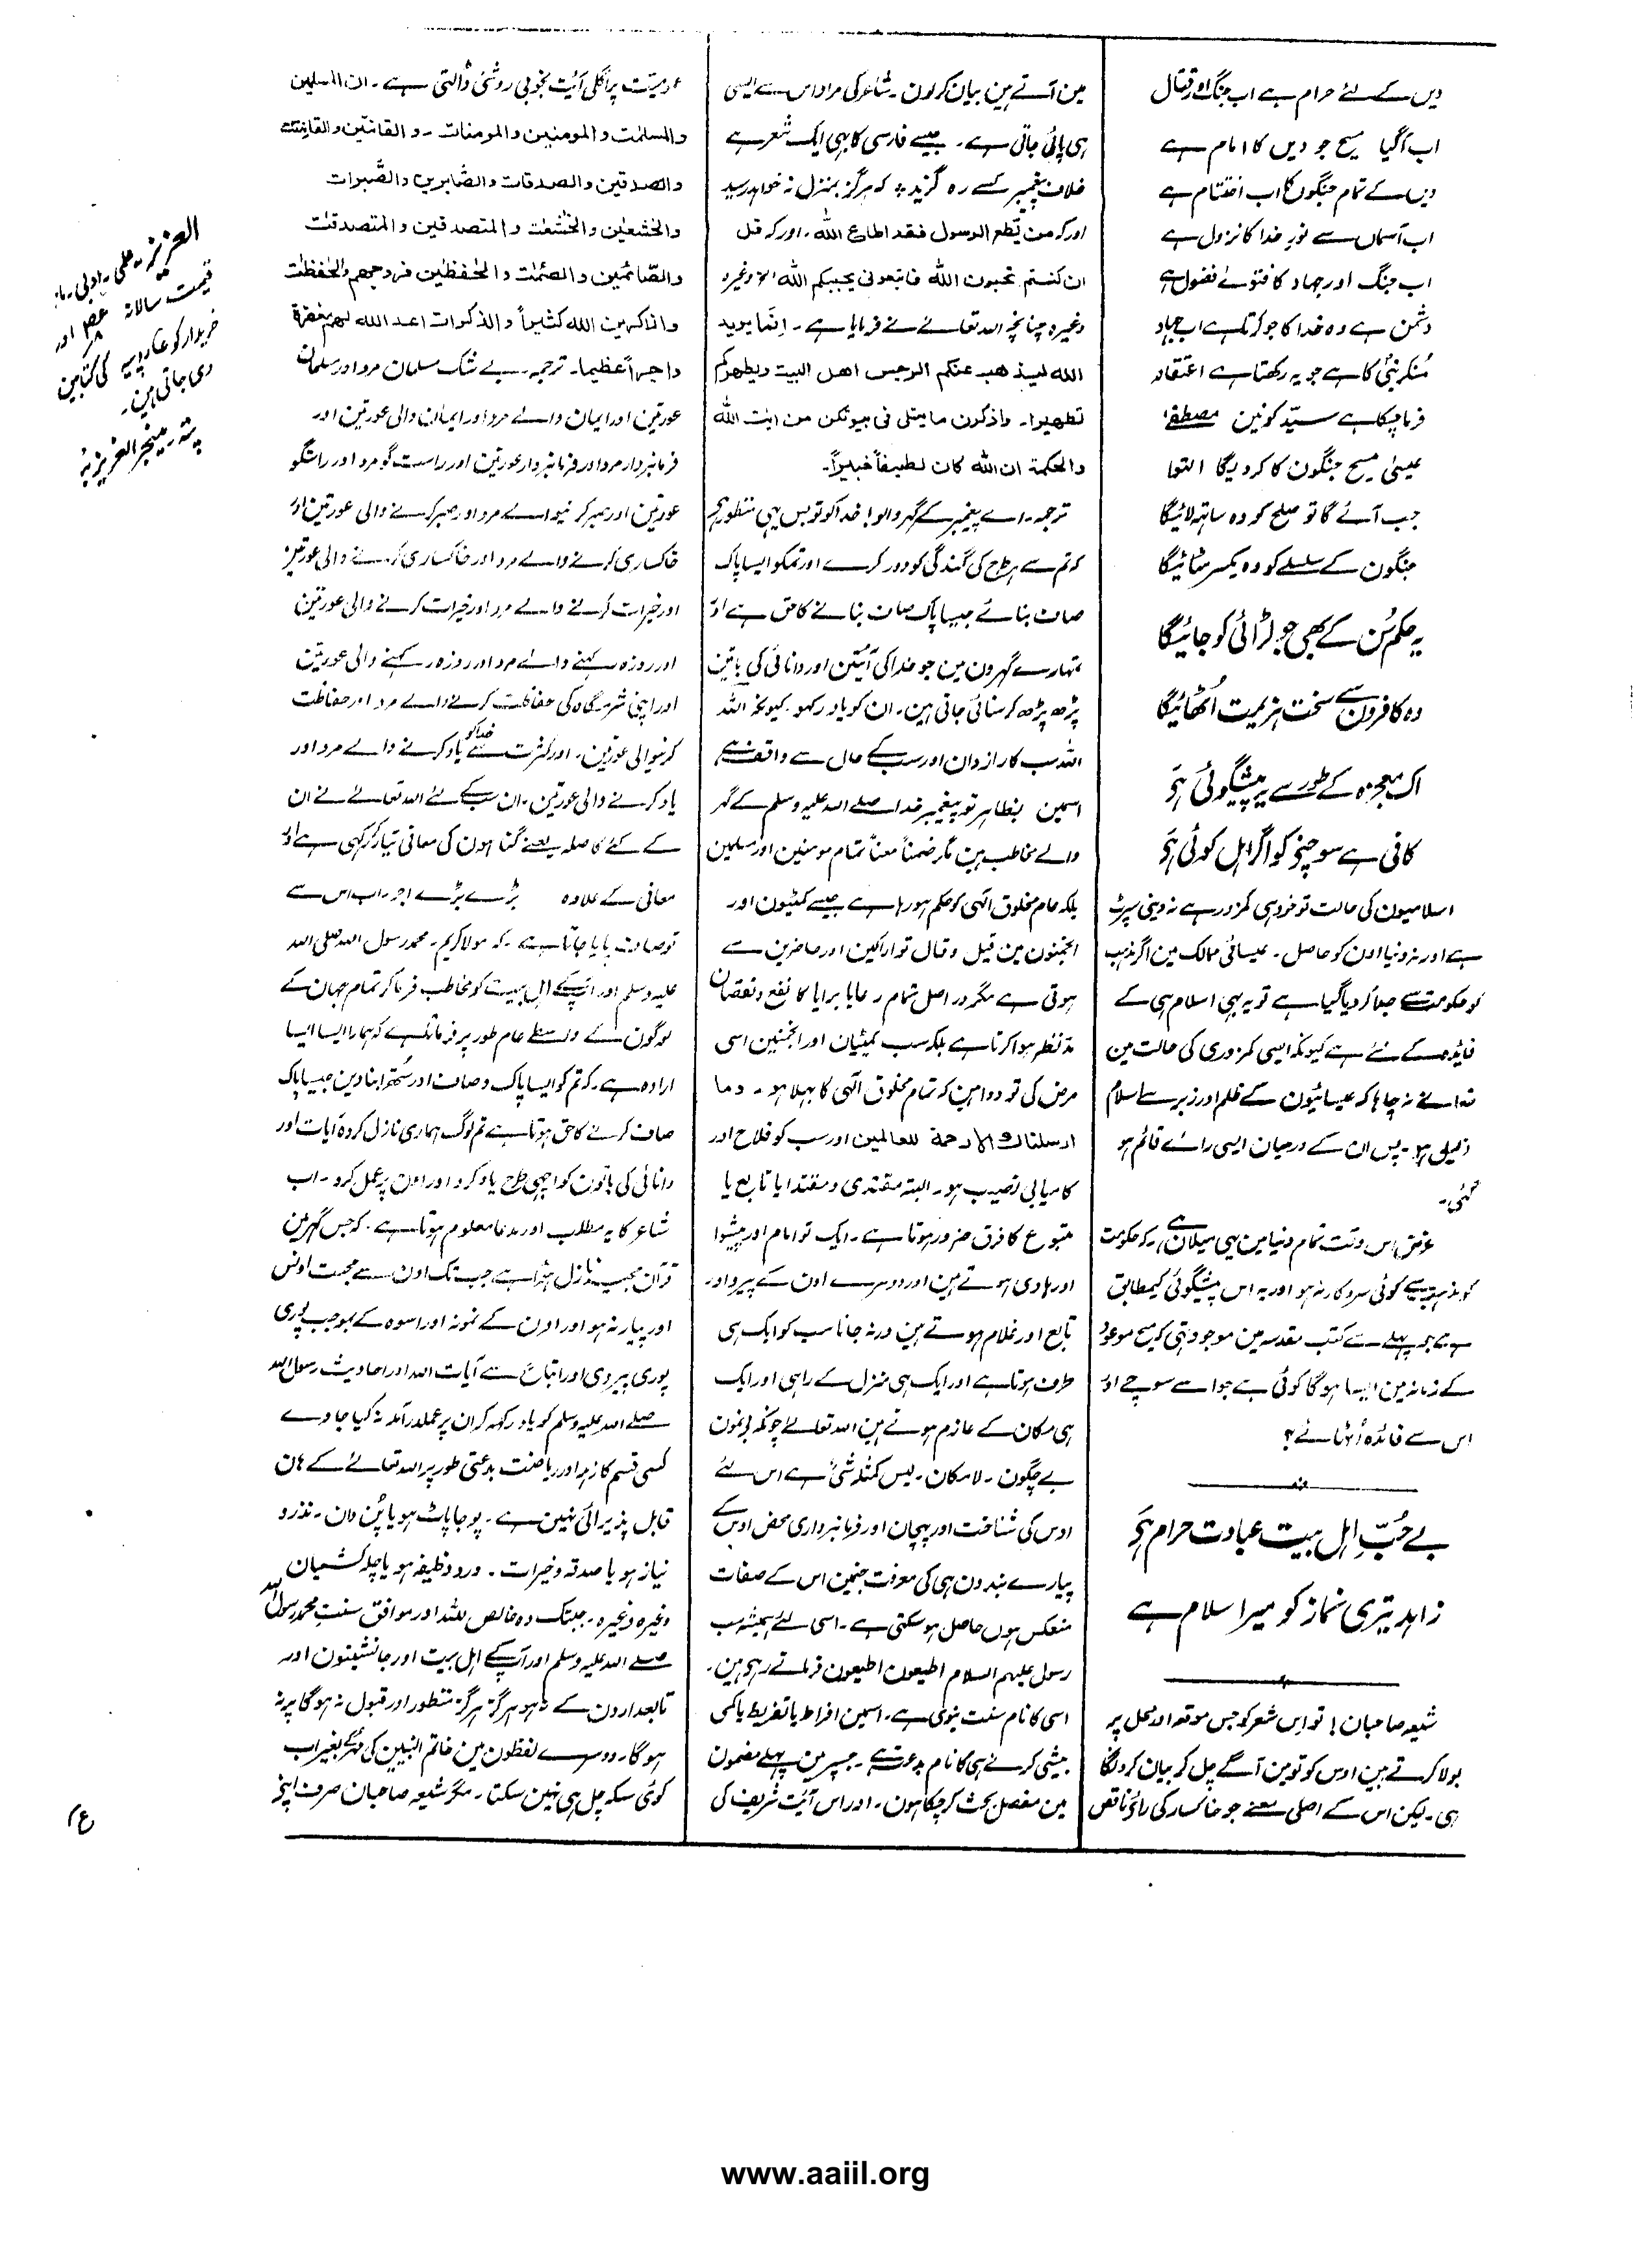 دیں کے لئے حرام ہے اب جنگ اور قتال
اب آگیا مسیح جو دیں کا امام ہے
دیں کے تمام جنگوں کا اب اختتام ہے
اب آسماں سے نور خدا کا نزول ہے
اب جنگ اور جہاد کا فتوےٰ فضول ہے
دشمن ہے وہ خدا کا جو کرتا ہے اب جہاد
منکر نبی کا ہے جو یہ رکھتا ہے اعتقاد
فرما چکا ہے سید کونین مصطفےٰ
عیسیٰ مسیح جنگون کا کردیگا التوا
جب آئے گا تو صلح کو وہ ساتہ لائیگا
جنگون کے سلسلے کو وہ یکسر مٹائیگا
یہ حکم سُن کے بھی جو لڑائی کو جائیگا
وہ کافرون سے سخت ہزیمت اُٹھائیگا
اک معجزہ کے طور سے یہ پیشگوئی ہَے
کافی ہے سوچنے کو اگر اہل کوئی ہَے
اسلامیون کی حالت تو خود ہی کمزور ہے نہ دینی سپرٹ
ہے اور نہ دنیا اون کو حاصل۔ عیسائی ممالک مین اگر مذہب
کو حکومت سے جدا کر دیا گیا ہے تو یہ بہی اسلام ہی کے
فائدہ کے لئے ہے کیونکہ ایسی کمزوری کی حالت مین
خدا نے نہ چاہا کہ عیسائیون کے ظلم اور زبر سے اسلام
ذلیل ہو۔ پس ان کے درمیان ایسی رائے قائم ہو
گئی۔
غرض اس وقت تمام دنیا مین یہی میلان ہے کہ حکومت
کو مذہب سے کوئی سروکار نہ ہو اور یہ اس پیشگوئی کیمطابق
ہے جو پہلے سے کتب مقدسہ مین موجود تہی کہ مسیح موعود
کے زمانہ مین ایسا ہوگا کوئی ہے جو اسے سوچے اور
اس سے فائدہ اُٹہائے؟
بے حُبِّ اہل بیت عبادت حرام ہَے
زاہد تیری نماز کو میرا سلام ہے
شیعہ صاحبان! تو اس شعر کو جس موقعہ اور محل پر
بولا کرتے ہین اوس کو تو مین آگے چل کر بیان کرونگا
ہی۔ لیکن اس کے اصلی معنے جو خاکسار کی رائے ناقص
مین آتے ہین بیان کر لون۔ شاعر کی مراد اس سے ایسی
ہی پائی جاتی ہے۔ جیسے فارسی کا بہی ایک شعر ہے
خلاف پیغمبر کسے رہ گزید ٭ کہ ہرگز بمنزل نہ خواہد رسید
اور کہ من یطع الرسول فقد اطاع الله۔ اور کہ قل
ان کنتم تحبون الله فاتبعونی یحببکم الله الآ وغیرہ
وغیرہ چنانچہ اللہ تعالےٰ نے فرمایا ہے۔ انما یرید
الله لیذهب عنکم الرجس اهل البیت ویطهرکم
تطهیرا۔ واذکرن ما یتلی فی بیوتکن من ایت الله
والحکمة ان الله کان لطیفاً خبیراً۔
ترجمہ۔ اے پیغمبر کے گہر والو! خدا کو تو بس یہی منظور ہے
کہ تم سے ہر طرح کی گندگی کو دور کرے اور تمکو ایسا پاک
صاف بنائے جیسا پاک صاف بنانے کا حق ہے اور
تمہارے گہرون مین جو خدا کی آئتین اور دانائی کی باتین
پڑھ پڑھ کر سنائی جاتی ہین۔ ان کو یاد رکہو۔ کیونکہ اللہ
اللہ سب کا رازدان اور سب کے حال سے واقف ہے
اسمین بظاہر تو پیغمبر خدا صلے اللہ علیہ وسلم کے گہر
والے مخاطب ہین مگر ضمناً معناً تمام مومنین اور مسلمین
بلکہ عام مخلوق الٰہی کو حکم ہو رہا ہے جیسے کمیٹیون اور
انجمنون مین قیل وقال تو اراکین اور حاضرین سے
ہوتی ہے مگر دراصل تمام رعایا برایا کا نفع ونقصان
مدنظر ہوا کرتا ہے بلکہ سب کمیٹیان اور انجمنین اسی
مرض کی تو دوا ہین کہ تمام مخلوق الٰہی کا بہلا ہو۔ وما
ارسلناك الا رحمة للعالمین اور سب کو فلاح اور
کامیابی نصیب ہو۔ البتہ مقتدی و مقتدا یا تابع یا
متبوع کا فرق ضرور ہوتا ہے۔ ایک تو امام اور پیشوا
اور ہادی ہوتے ہین اور دوسرے اون کے پیرو اور
تابع اور غلام ہوتے ہین ورنہ جانا سب کو ایک ہی
طرف ہوتا ہے اور ایک ہی منزل کے راہی اور ایک
ہی مکان کے عازم ہوتے ہین اللہ تعالےٰ چونکہ بیچون
بے چگون۔ لامکان۔ لیس کمثلہ شئ ہے اس لئے
اوس کی شناخت اور پہچان اور فرمانبرداری محض اوس کے
پیارے بندون ہی کی معرفت جنمین اس کے صفات
منعکس ہوں حاصل ہو سکتی ہے۔ اسی لئے ہمیشہ سب
رسول علیہم السلام اطیعون اطیعون فرماتے رہے ہین۔
اسی کا نام سنت نبوی ہے۔ اسمین افراط یا تفریط یا کمی
بیشی کرنے ہی کا نام بدعت ہے۔ جسپر مین پہلے مضمون
مین مفصل بحث کر چکا ہون۔ اور اس آئت شریف کی
عمومیت پر اگلی آئت بخوبی روشنی ڈالتی ہے۔ ان المسلمین
والمسلمٰت والمومنین والمومنات۔ والقانتین والقانتٰت
والصدقین والصدقات والصّابرین والصّبرات
والخٰشعین والخٰشعٰت والمتصدقین والمتصدقٰت
والصّائمین والصٰئمٰت والحٰفظین فروجهم والحٰفظٰت
والذاکرین الله کثیراً والذکرات اعد الله لهم مغفرة
واجراً عظیما۔ ترجمہ۔ بے شک مسلمان مرد اور مسلمان
عورتین اور ایمان والے مرد اور ایمان والی عورتین اور
فرمانبردار مرد اور فرمانبردار عورتین اور راست گو مرد اور راستگو
عورتین اور صبر کرنیوالے مرد اور صبر کرنے والی عورتین اور
خاکساری کرنے والے مرد اور خاکساری کرنے والی عورتین
اور خیرات کرنے والے مرد اور خیرات کرنے والی عورتین
اور روزہ رکہنے والے مرد اور روزہ رکہنے والی عورتین
اور اپنی شرمگاہ کی حفاظت کرنے والے مرد اور حفاظت
کرنیوالی عورتین۔ اور کثرت سے خدا کو یاد کرنے والے مرد اور
یاد کرنے والی عورتین۔ ان سب کے لئے اللہ تعالےٰ نے ان
کے کئے کا صلہ یعنے گناہون کی معافی تیار کر رکہی ہے اور
معافی کے علاوہ بڑے بڑے اجر۔ اب اس سے
تو صاف پایا جاتا ہے۔ کہ مولا کریم۔ محمد رسول اللہ صلی اللہ
علیہ وسلم اور آپکے اہل بیت کو مخاطب فرما کر تمام جہان کے
لوگون کے واسطے عام طور پر فرماتا ہے کہ ہمارا ایسا ایسا
ارادہ ہے۔ کہ تم کو ایسا پاک وصاف اور ستھرا بنا دین جیسا پاک
صاف کرنے کا حق ہوتا ہے تم لوگ ہماری نازل کردہ آیات اور
دانائی کی باتون کو اچہی طرح یاد کرو اور اون پر عمل کرو۔ اب
شاعر کا یہ مطلب اور مدعا معلوم ہوتا ہے۔ کہ جس گہر مین
قرآن مجید نازل ہوا ہے جب تک اون سے محبت اونس
اور پیار نہ ہو اور اون کے نمونہ اور اسوہ کے بموجب پوری
پوری پیروی اور اتباع سے آیات اللہ اور احادیث رسول اللہ
صلے اللہ علیہ وسلم کو یاد رکہہ کر ان پر عملدرآمد نہ کیا جاوے
کسی قسم کا زہد اور ریاضت بدعتی طور پر اللہ تعالےٰ کے ہان
قابل پذیرائی نہین ہے۔ پوجا پاٹ ہو یا پُن دان۔ نذر و
نیاز ہو یا صدقہ وخیرات۔ ورد وظیفہ ہو یا چلہ کشیان
وغیرہ وغیرہ۔ جبتک وہ خالص للہ اور موافق سنت محمد رسول اللہ
صلے اللہ علیہ وسلم اور آپکے اہل بیت اور جانشینون اور
تابعدارون کے نہ ہو ہرگز ہرگز منظور اور قبول نہ ہوگا پر نہ
ہوگا۔ دوسرے لفظون مین خاتم النبیین کی مُہر کے بغیر اب
کوئی سکہ چل ہی نہین سکتا۔ مگر شیعہ صاحبان صرف اپنی
العزیز۔ علمی۔ ادبی۔
قیمت سالانہ اور
خریدار کو کی کتابین
دی جاتی ہین۔
پتہ۔ مینجر العزیز
www.aaiil.org